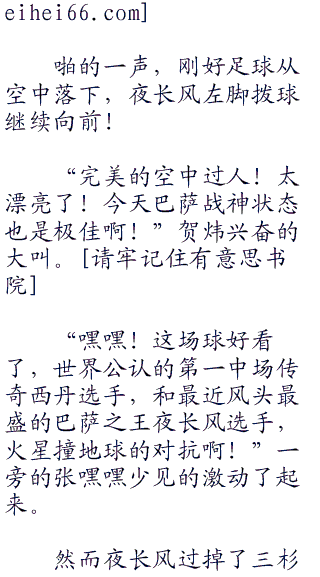 eihei66.com]
啪的一声，刚好足球从
空中落下，夜长风左脚拨球
继续向前！
“完美的空中过人！太
漂亮了！今天巴萨战神状态
也是极佳啊！”贺炜兴奋的
大叫。[请牢记住有意思书
院]
“嘿嘿！这场球好看
了，世界公认的第一中场传
奇西丹选手，和最近风头最
盛的巴萨之王夜长风选手，
火星撞地球的对抗啊！”一
旁的张嘿嘿少见的激动了起
来。
然而夜长风过掉了三杉